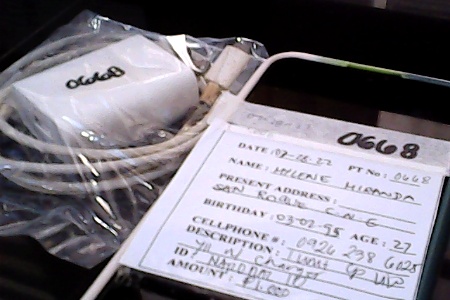 0668
0668
DATE: 09-16-22 PT No: 0668
NAME: MYLENE MIRANDA
PRESENT ADDRESS:
SAN ROQUE C.N.E
BIRTHDAY: 03-02-95 AGE: 27
CELLPHONE #: 0926 238
DESCRIPTION:
W/ Charger
ID:
AMOUNT: ₱1,000